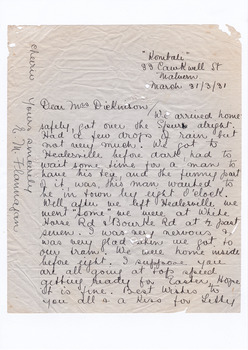 "Rombale"
33 Cawkwell St
Malvern
March 31/3/31
Dear Mrs Dickinson,
We arrived home
safely, got over the Spur alright.
Had a few drops of rain but
not very much. We got to
Healesville before dark, had to
wait some time for a man to
have his tea, and the funny part
of it was, this man wanted to
be in town by eight O'clock.
Well after we left Healesville we
went "some" we were at White
Horse Rd & Bourke Rd at ½ past
seven. I was very nervous &
was very glad when we got to
our tram. We were home inside
before eight. I suppose you
are all going at top speed
getting ready for Easter, Hope
it is fine. Best Wishes to
you all & a Kiss for Letty
cheerio
Yours sincerely
E. M. Flannagan